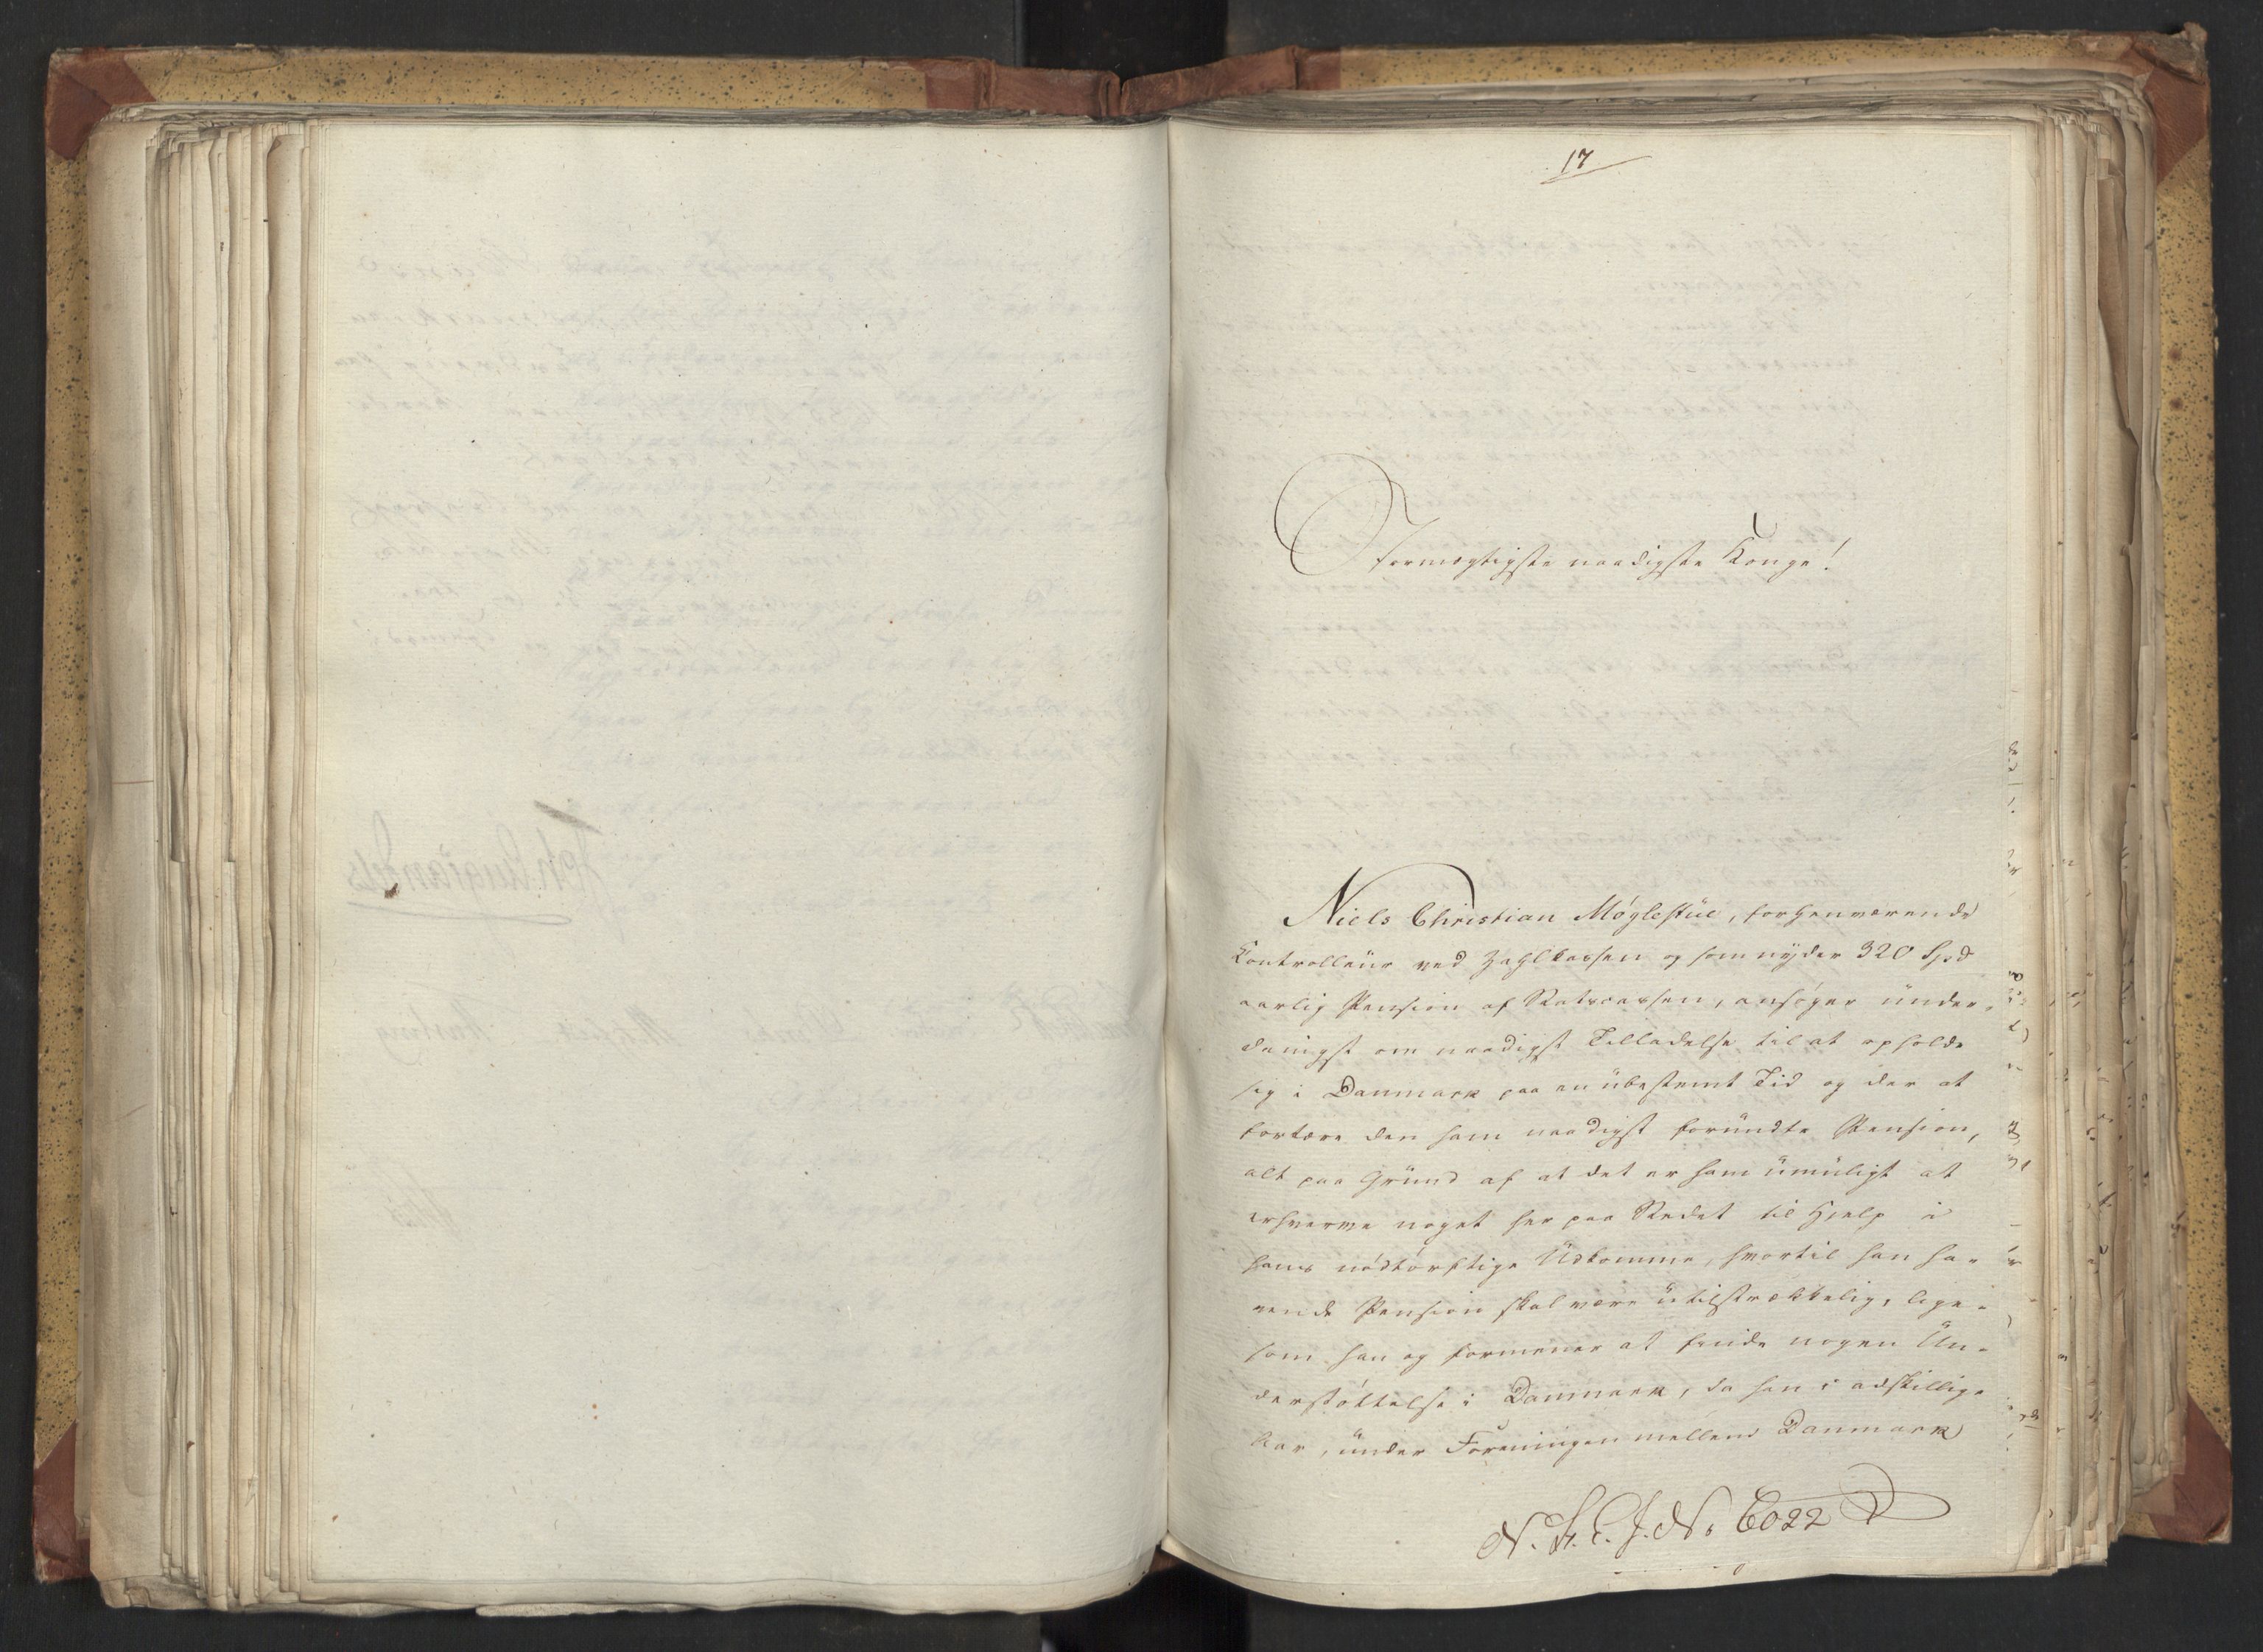 17
Stormægtigste naadigste Konge!
Niels Christian Møglestüe, forhenværende
Kontrolleür ved Zahlkassen og som nyder 320 Spd
aarlig Pension af Statscassen, ansøger ünder-
danigst om naadigst Tilladelse til at opholde
sig i Danmark paa en übestemt Tid og der at
fortære den ham naadigst foründte Pension,
alt paa Gründ af at det er ham ümüligt at
erhverve noget her paa Stedet til Hjelp i
hans nødtørftige Üdkomme, hvortil han ha-
vende Pension skal være ütilstrækkelig, lige-
som han og formener at finde nogen Ün-
derstøttelse i Danmark, da han i adskillige
Aar, ünder Foreningen mellem Danmark
N. H. C. J. No 6022